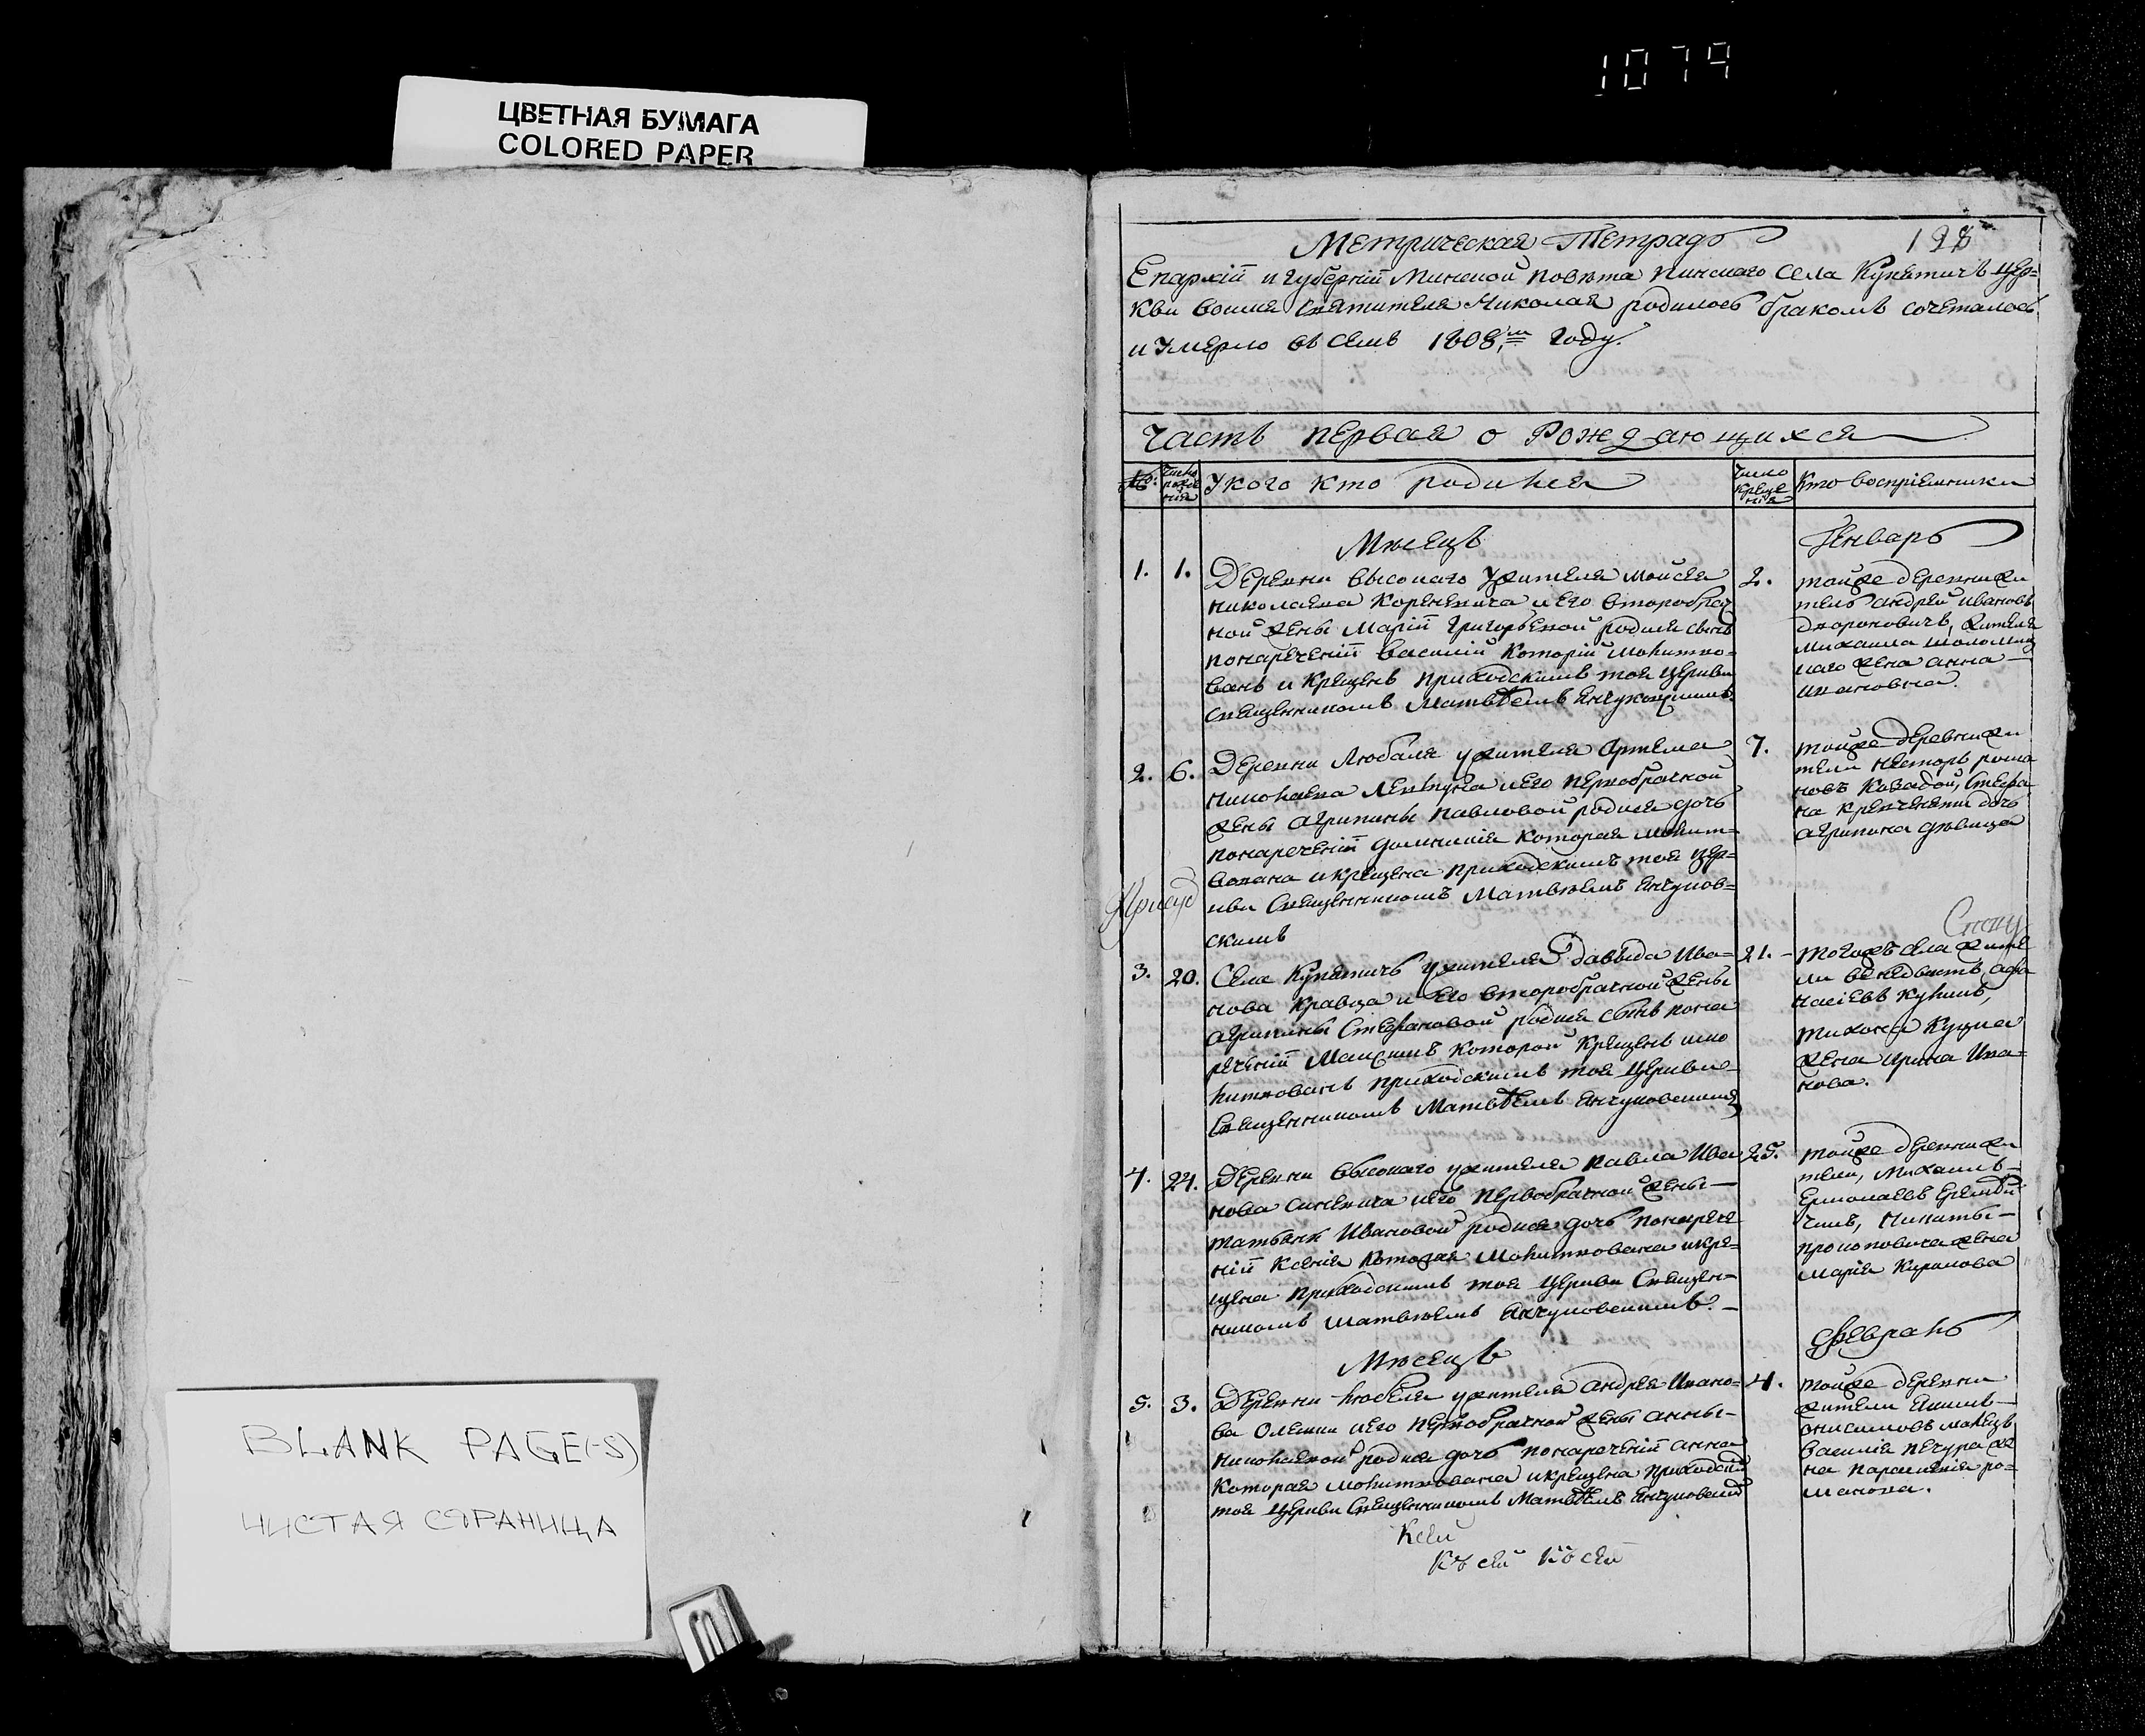 1079
ЦВЕТНАЯ БУМАГА
COLORED PAPER
BLANK PAGE(-S)
ЧИСТАЯ СТРАНИЦА
Метрическая Тетрадь
198
Епархіи и губерніи Минской Повѣта Пинскаго Села Купятичъ цер=
кви воимя Святителя Николая родилось бракомъ сочеталось
и умерло въ семъ 1808,м году.
Часть первая о Рождающихся
№: Число рожденія У кого кто родился Число Крещенія Кто воспріемники
Мѣсецъ Генварь
1. 1. Деревни высокаго Ужителя Мойсея
николаева Кореневича и Его второбрач
ной жены Маріи Григорьевой родися сынъ
понареченіи василій Которій молитво-
ванъ и Крещенъ приходскимъ тоя церкви
священникомъ Матвѣемъ
2. тойже деревни жи
тель андрей Ивановъ
жителя
Михаила
жена анна
ивановна.
2. 6. Деревни Любаля ужителя Артема
николаева и Его первобрачной
жены агрипины Павловой родися дочь
понареченіи домникія Которая молит=
вована икрещена приходскимъ тоя цер=
кви Священникомъ Матвѣемъ Янчуков=
скимъ
7. тойже деревни жи
тели несторъ рома
новъ Козадой, Стефа
на дочь
агрипина дѣвица
3. 20. Села Купятичъ ужителя давыда Ива=
нова Кравца и Его второбрачной жены
агрипины Стефановой родися сынъ пона
реченіи Максимъ Которой Крещенъ имо
литвованъ приходскимъ тоя Церкви
Священникомъ Матвѣемъ Янчуковскимъ
21. тогожъ села жите
ли афа
насіевъ
тихона Куцна
жена ирина Ива=
нова.
4. 24. Деревни высокаго ужителя Павла Ива
нова иЕго первобрачной жены
татьяны Ивановой родися дочь понарече
ніи Ксенія Которая Молитвована икре=
щена Приходскимъ тоя Церкви Священ=
никомъ матвѣемъ Янчуковскимъ.
25. тойже деревни жи
тели, Михаилъ
Ермолаевъ
Никиты
прокоповича жена
Марія Кирилова
Мѣсецъ Февраль
5. 3. Деревни любеля ужителя андрея Ивано=
ва иЕго первобрачной жены анны
николаевой родися дочь понареченіи анна
Которая молитвована икрещена приходски
тоя Церкви Священникомъ Матвѣемъ Янчуковски
4. тойже деревни
жители
онисимовъ
василія печура же
на роМанова.
Ксей
Къ сей Къ сей